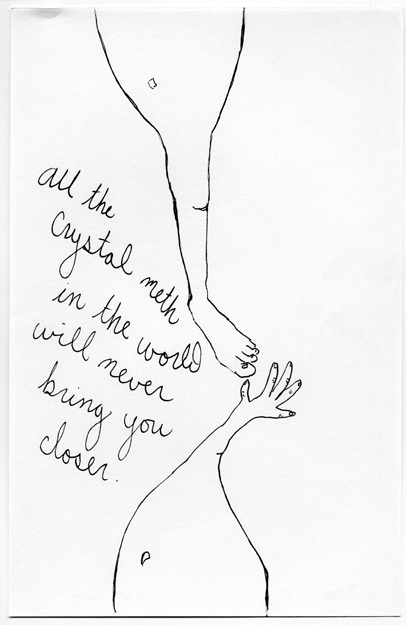 all the
crystal meth
in the world
will never
bring you
closer.